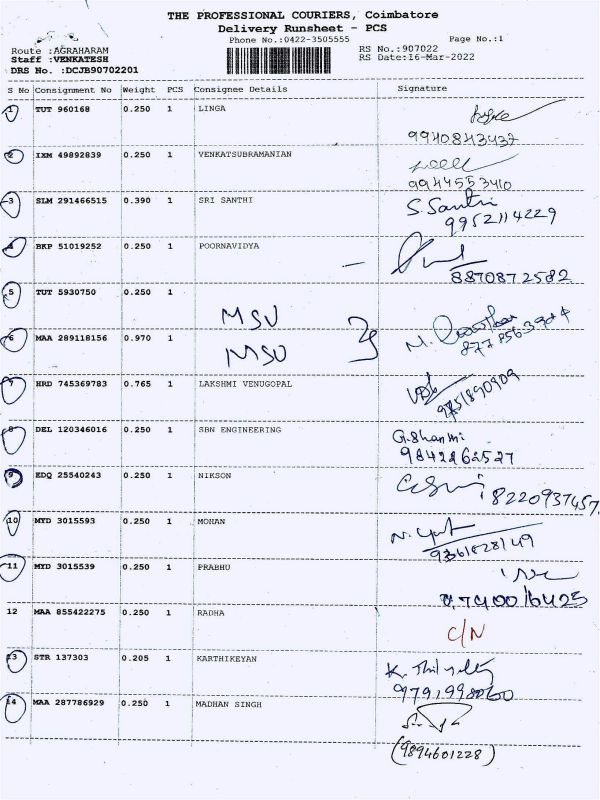 THE PROFESSIONAL COURIERS, Coimbatore
Delivery Runsheet - PCS
Phone No.:0422-3505555 Page No.:1
Route :AGRAHARAM RS No.:907022
Staff :VENKATESH RS Date:16-Mar-2022
DRS No. :DCJB90702201
S No Consignment No Weight PCS Consignee Details Signature
1 TUT 960168 0.250 1 LINGA
9940843437
2 IXM 49892839 0.250 1 VENKATSUBRAMANIAN
9944553410
3 SLM 291466515 0.390 1 SRI SANTHI S. Santhi
9952114229
4 BKP 51019252 0.250 1 POORNAVIDYA
8870872582
5 TUT 5930750 0.250 1
MSU
6 MAA 289118156 0.970 1 MSU
7 HRD 745369783 0.765 1 LAKSHMI VENUGOPAL
9751890909
8 DEL 120346016 0.250 1 SBN ENGINEERING G.Shanmi
9842262527
9 EDQ 25540243 0.250 1 NIKSON
8220937457
10 MYD 3015593 0.250 1 MOHAN
9361828149
11 MYD 3015539 0.250 1 PRABHU
12 MAA 855422275 0.250 1 RADHA C/N
13 STR 137303 0.205 1 KARTHIKEYAN
9791998060
14 MAA 287786929 0.250 1 MADHAN SINGH
(9894601228)